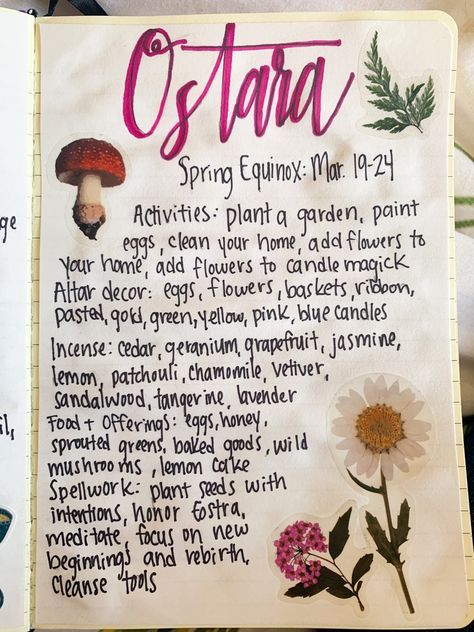 Ostara
Spring Equinox: Mar. 19-24
Activities: plant a garden, paint
eggs, clean your home, add flowers to
your home, add flowers to candle magick
Altar decor: eggs, flowers, baskets, ribbon,
pastel, gold, green, yellow, pink, blue candles
Incense: cedar, geranium, grapefruit, jasmine,
lemon, patchouli, chamomile, vetiver,
sandalwood, tangerine, lavender
Food + Offerings: eggs, honey,
sprouted greens, baked goods, wild
mushrooms, lemon cake
Spellwork: plant seeds with
intentions, honor Eostra,
meditate, focus on new
beginnings and rebirth,
cleanse tools